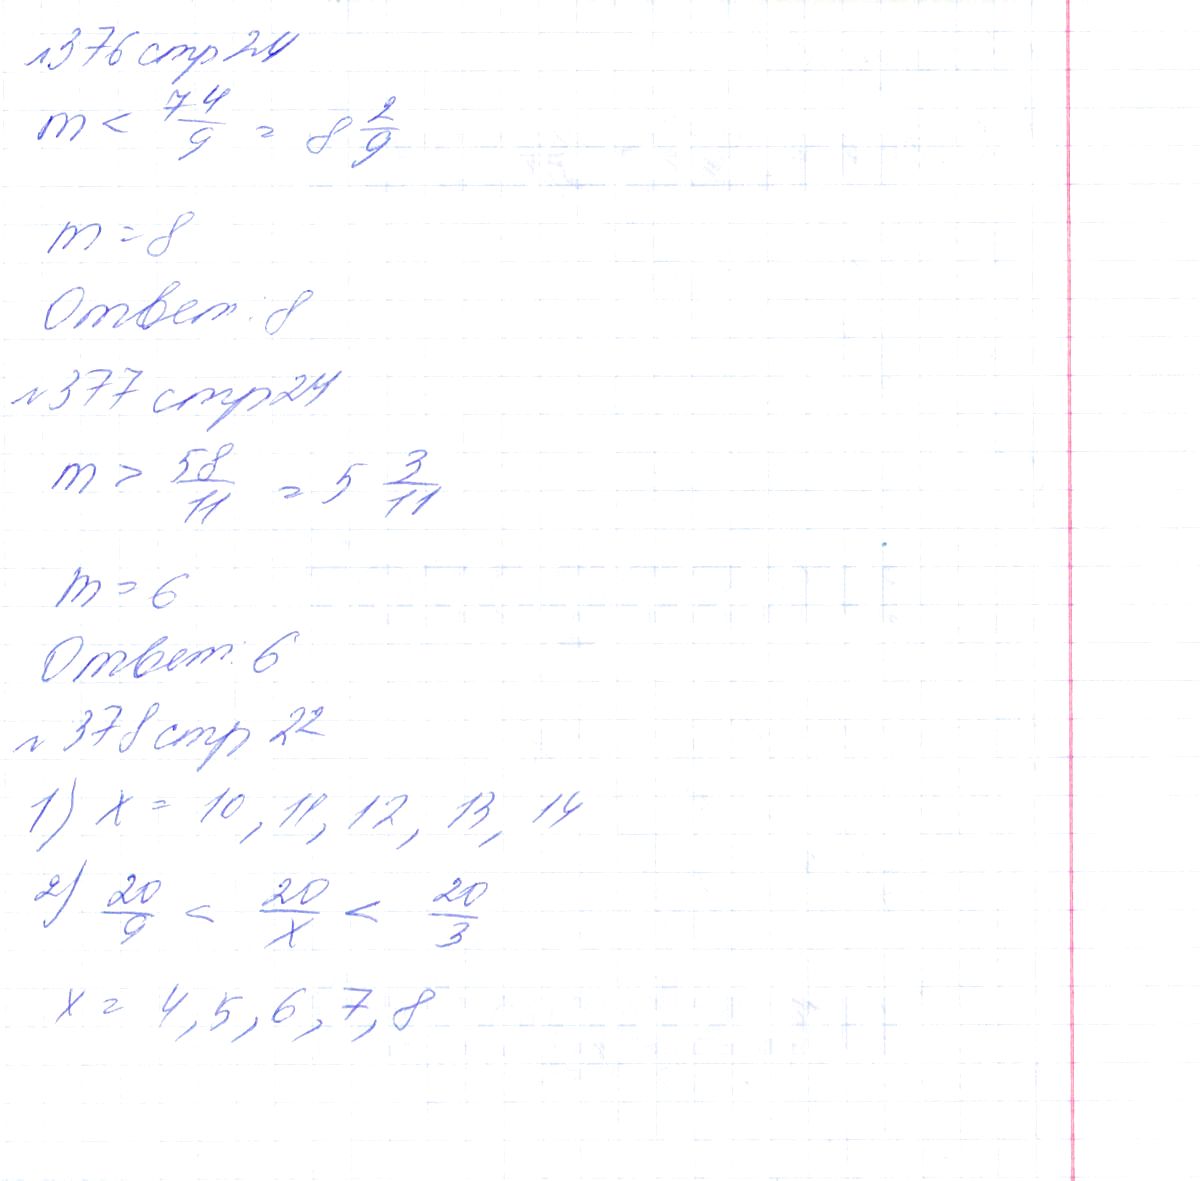 №376 стр 24
m < 74/9 = 8 2/9
m = 8
Ответ: 8
№377 стр 24
m > 58/11 = 5 3/11
m = 6
Ответ: 6
№378 стр 22
1) x = 10, 11, 12, 13, 14
2) 20/9 < 20/x < 20/3
x = 4, 5, 6, 7, 8